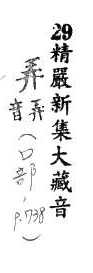 29精嚴新集大藏音
弄音弄(口部,p.738)